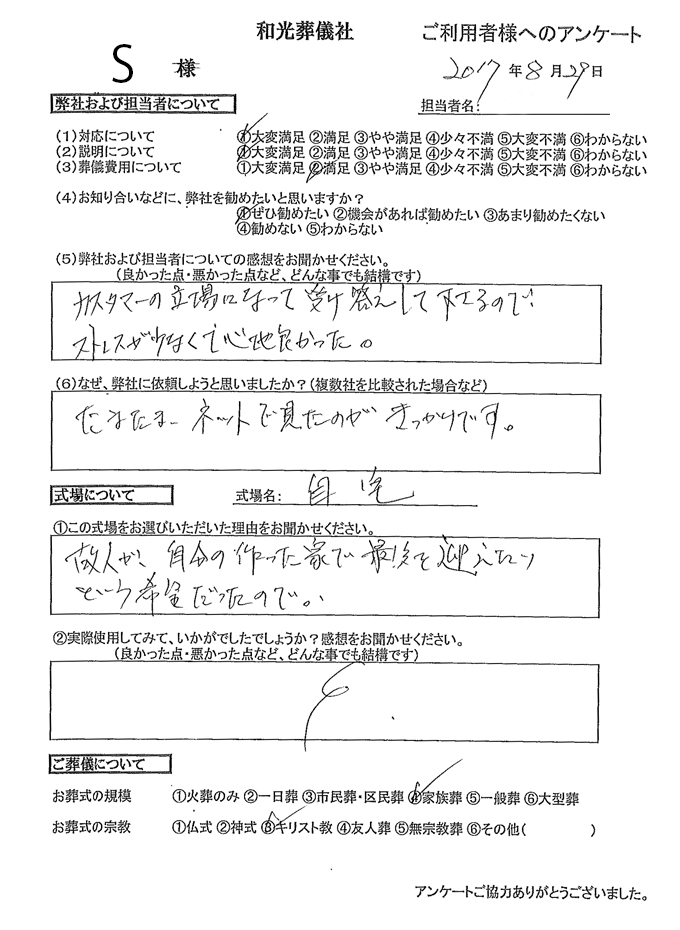 和光葬儀社 ご利用者様へのアンケート
S 様
2017年8月29日
弊社および担当者について
担当者名:
(1)対応について ①大変満足 ②満足 ③やや満足 ④少々不満 ⑤大変不満 ⑥わからない
(2)説明について ①大変満足 ②満足 ③やや満足 ④少々不満 ⑤大変不満 ⑥わからない
(3)葬儀費用について ①大変満足 ②満足 ③やや満足 ④少々不満 ⑤大変不満 ⑥わからない
(4)お知り合いなどに、弊社を勧めたいと思いますか?
①ぜひ勧めたい ②機会があれば勧めたい ③あまり勧めたくない
④勧めない ⑤わからない
(5)弊社および担当者についての感想をお聞かせください。
(良かった点・悪かった点など、どんな事でも結構です)
カスタマーの立場になって受け答えして下さるので、
ストレスが少なくて心地良かった。
(6)なぜ、弊社に依頼しようと思いましたか?(複数社を比較された場合など)
たまたま、ネットで見たのがきっかけです。
式場について
式場名: 自宅
①この式場をお選びいただいた理由をお聞かせください。
故人が、自分の作った家で最後を迎えたい
という希望だったので、、
②実際使用してみて、いかがでしたでしょうか?感想をお聞かせください。
(良かった点・悪かった点など、どんな事でも結構です)
ご葬儀について
お葬式の規模 ①火葬のみ ②一日葬 ③市民葬・区民葬 ④家族葬 ⑤一般葬 ⑥大型葬
お葬式の宗教 ①仏式 ②神式 ③キリスト教 ④友人葬 ⑤無宗教葬 ⑥その他( )
アンケートご協力ありがとうございました。